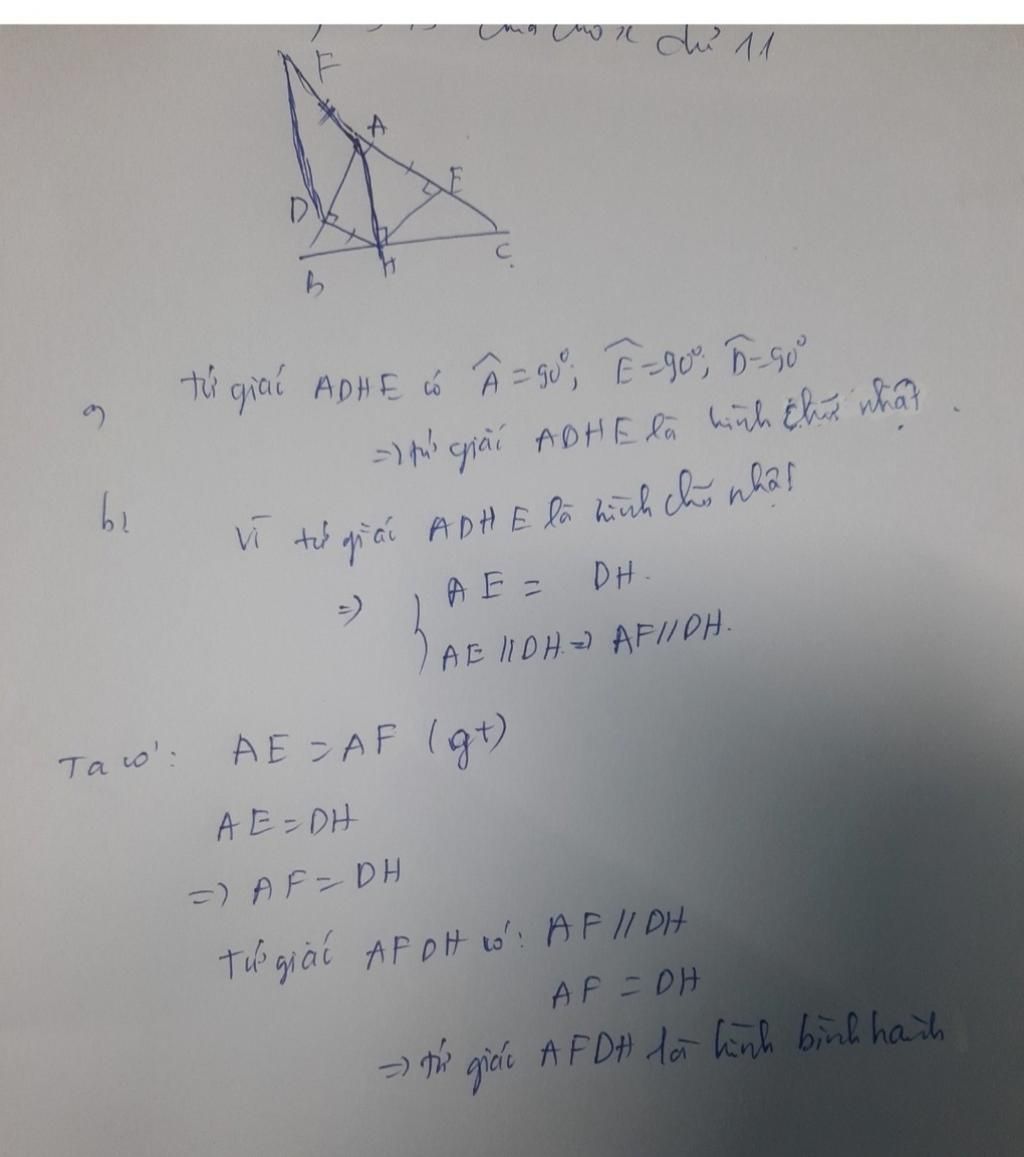 chữ 11
F
A
E
D
B
H
C
a, tứ giác ADHE có Â = 90°; Ê = 90°; D̂ = 90°
=> tứ giác ADHE là hình chữ nhật.
b, Vì tứ giác ADHE là hình chữ nhật
=> { AE = DH.
AE // DH. => AF // DH.
Ta có: AE = AF (gt)
AE = DH
=> AF = DH
Tứ giác AFDH có: AF // DH
AF = DH
=> tứ giác AFDH là hình bình hành